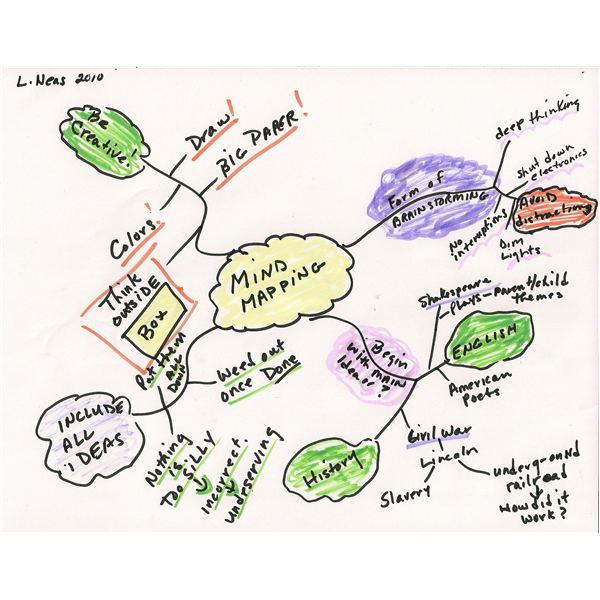 L. Neas 2010
Be
Creative!
Draw!
BIG PAPER!
Colors!
Think
outside
Box
MIND
MAPPING
Form of
BRAINSTORMING
deep thinking
shut down
electronics
AVOID
distractions
No
interruptions
Dim
Lights
Begin
with MAIN
Idea or?
Shakespeare
plays - Parent/child
themes
ENGLISH
American
Poets
History
Civil War
Lincoln
Slavery
underground
railroad
How did it
work?
INCLUDE
ALL
iDEAS
Put them
ALL
Down
Weed out
once Done
Nothing
is
Too SILLY
incorrect.
undeserving